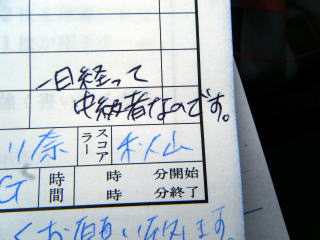 一日経って
中納者なのです。
川奈 スコアラー 秋山
G 時間 時 分開始
時 分終了
くお願い致します。